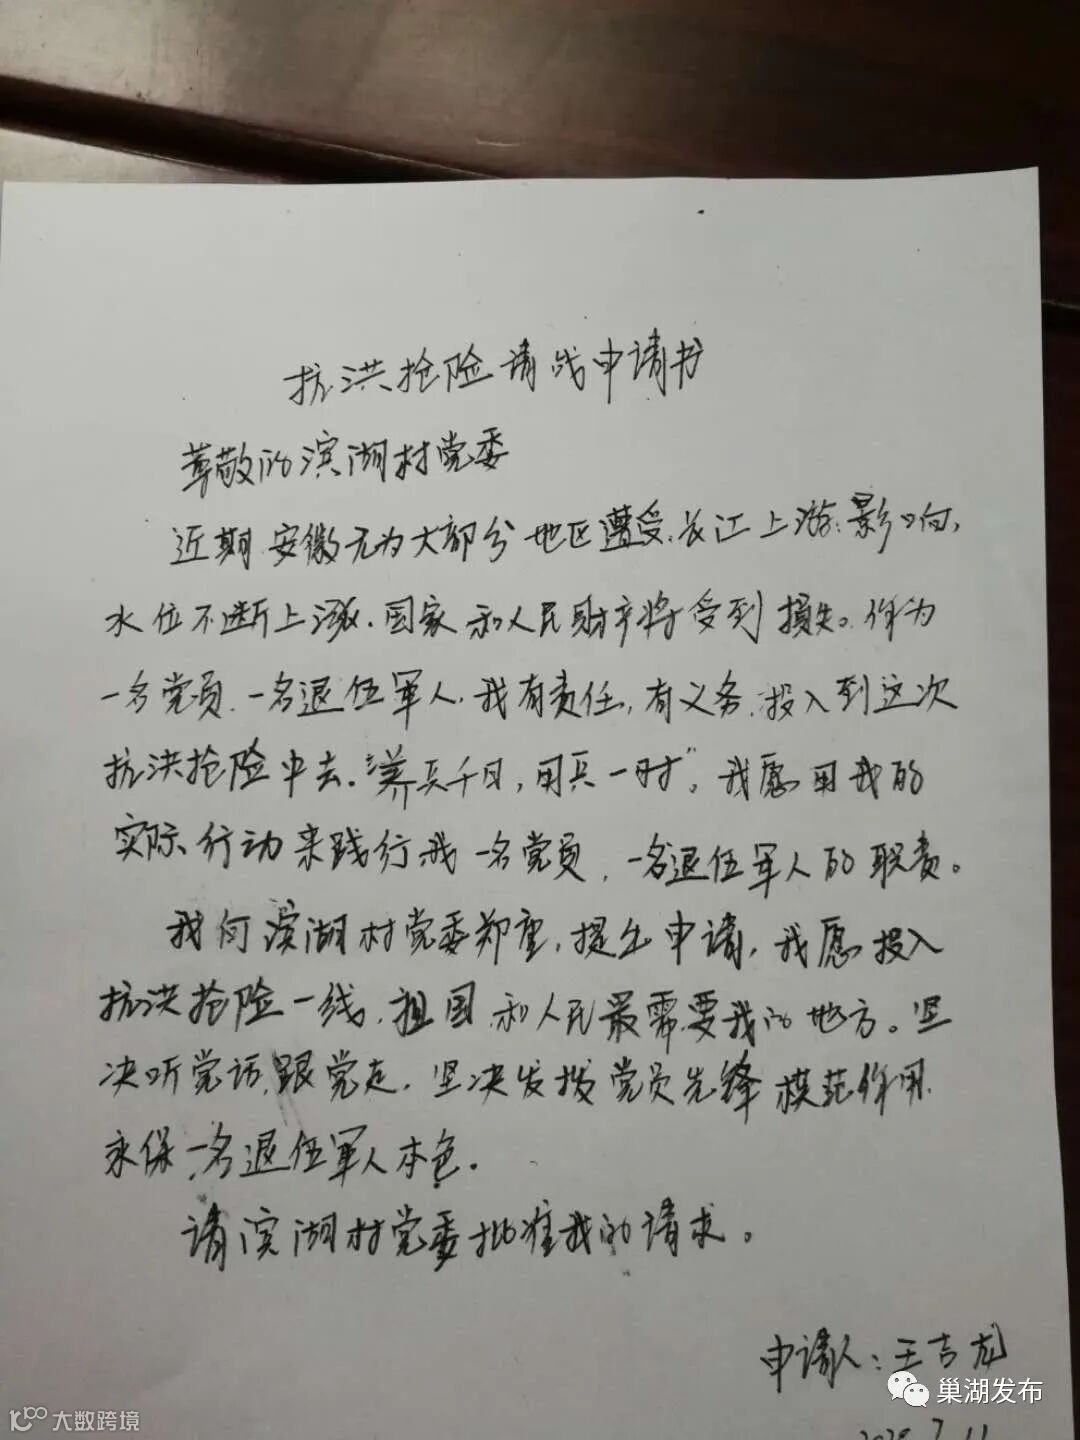 抗洪抢险请战申请书
尊敬的滨湖村党委
近期安徽无为大部分地区遭受长江上游影响,
水位不断上涨.国家和人民财产将受到损失。作为
一名党员.一名退伍军人.我有责任,有义务.投入到这次
抗洪抢险中去.“养兵千日,用兵一时”。我愿用我的
实际行动来践行我一名党员,一名退伍军人的职责。
我向滨湖村党委郑重,提出申请,我愿投入
抗洪抢险一线.祖国和人民最需要我的地方。坚
决听党话.跟党走.坚决发拨党员先锋模范作用
永保一名退伍军人本色.
请滨湖村党委批准我的请求。
申请人:王吉龙
巢湖发布
大数跨境
2020.7.11